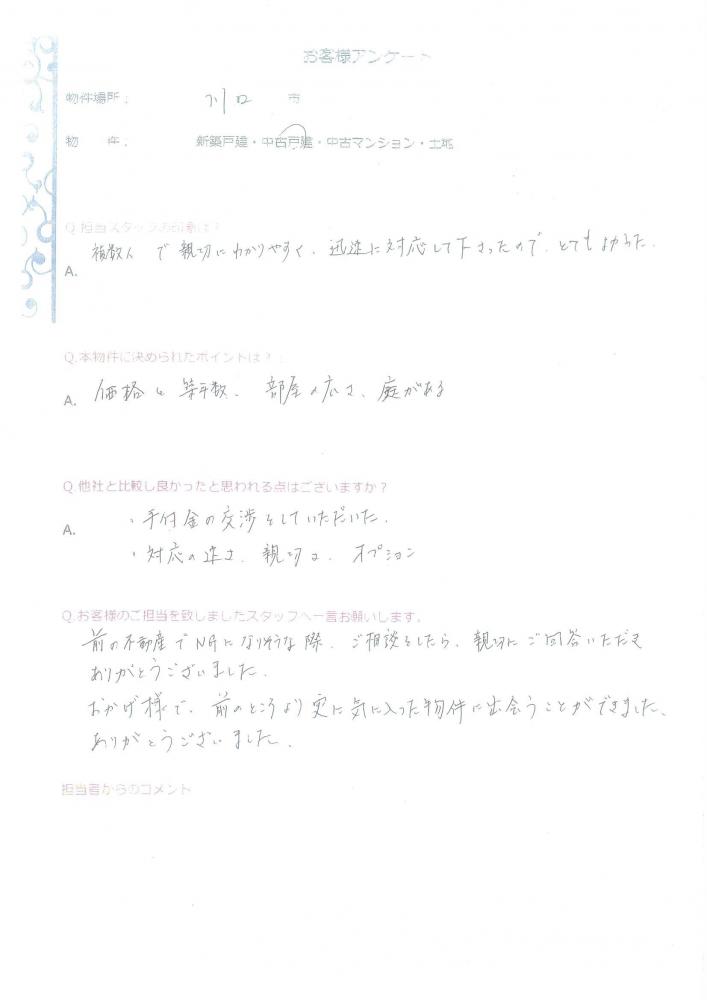 お客様アンケート
物件場所： 川口 市
物 件： 新築戸建・中古戸建・中古マンション・土地
Q.担当スタッフの印象は？
複数人で親切にわかりやすく、迅速に対応して下さったので、とてもよかった。
A.
Q.本物件に決められたポイントは？
A. 価格 部屋の広さ、庭がある
Q.他社と比較し良かったと思われる点はございますか？
・手付金の交渉をしていただいた。
A.
・対応の速さ、親切さ、オプション
Q.お客様のご担当を致しましたスタッフへ一言お願いします。
前の不動産でNGになりそうな際、ご相談をしたら、親切にご回答いただき
ありがとうございました。
おかげ様で、前のところより更に気に入った物件に出会うことができました、
ありがとうございました。
担当者からのコメント